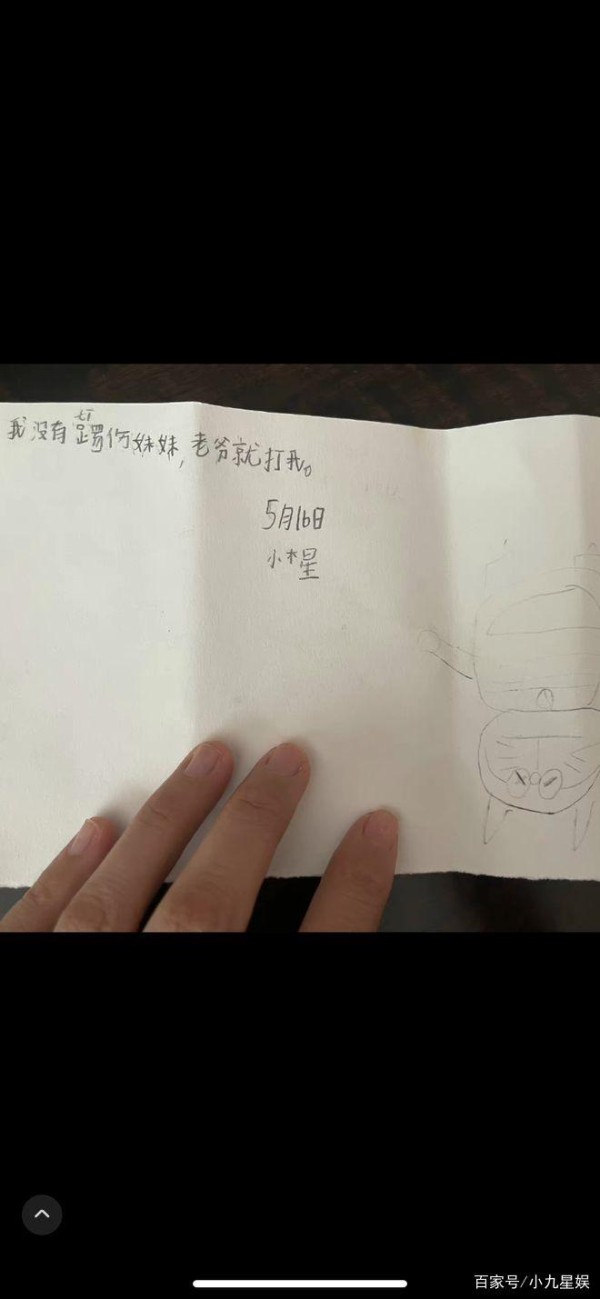 我没有踢伤妹妹,老爷就打我。
5月16日
小木星
百家号/小九星娱